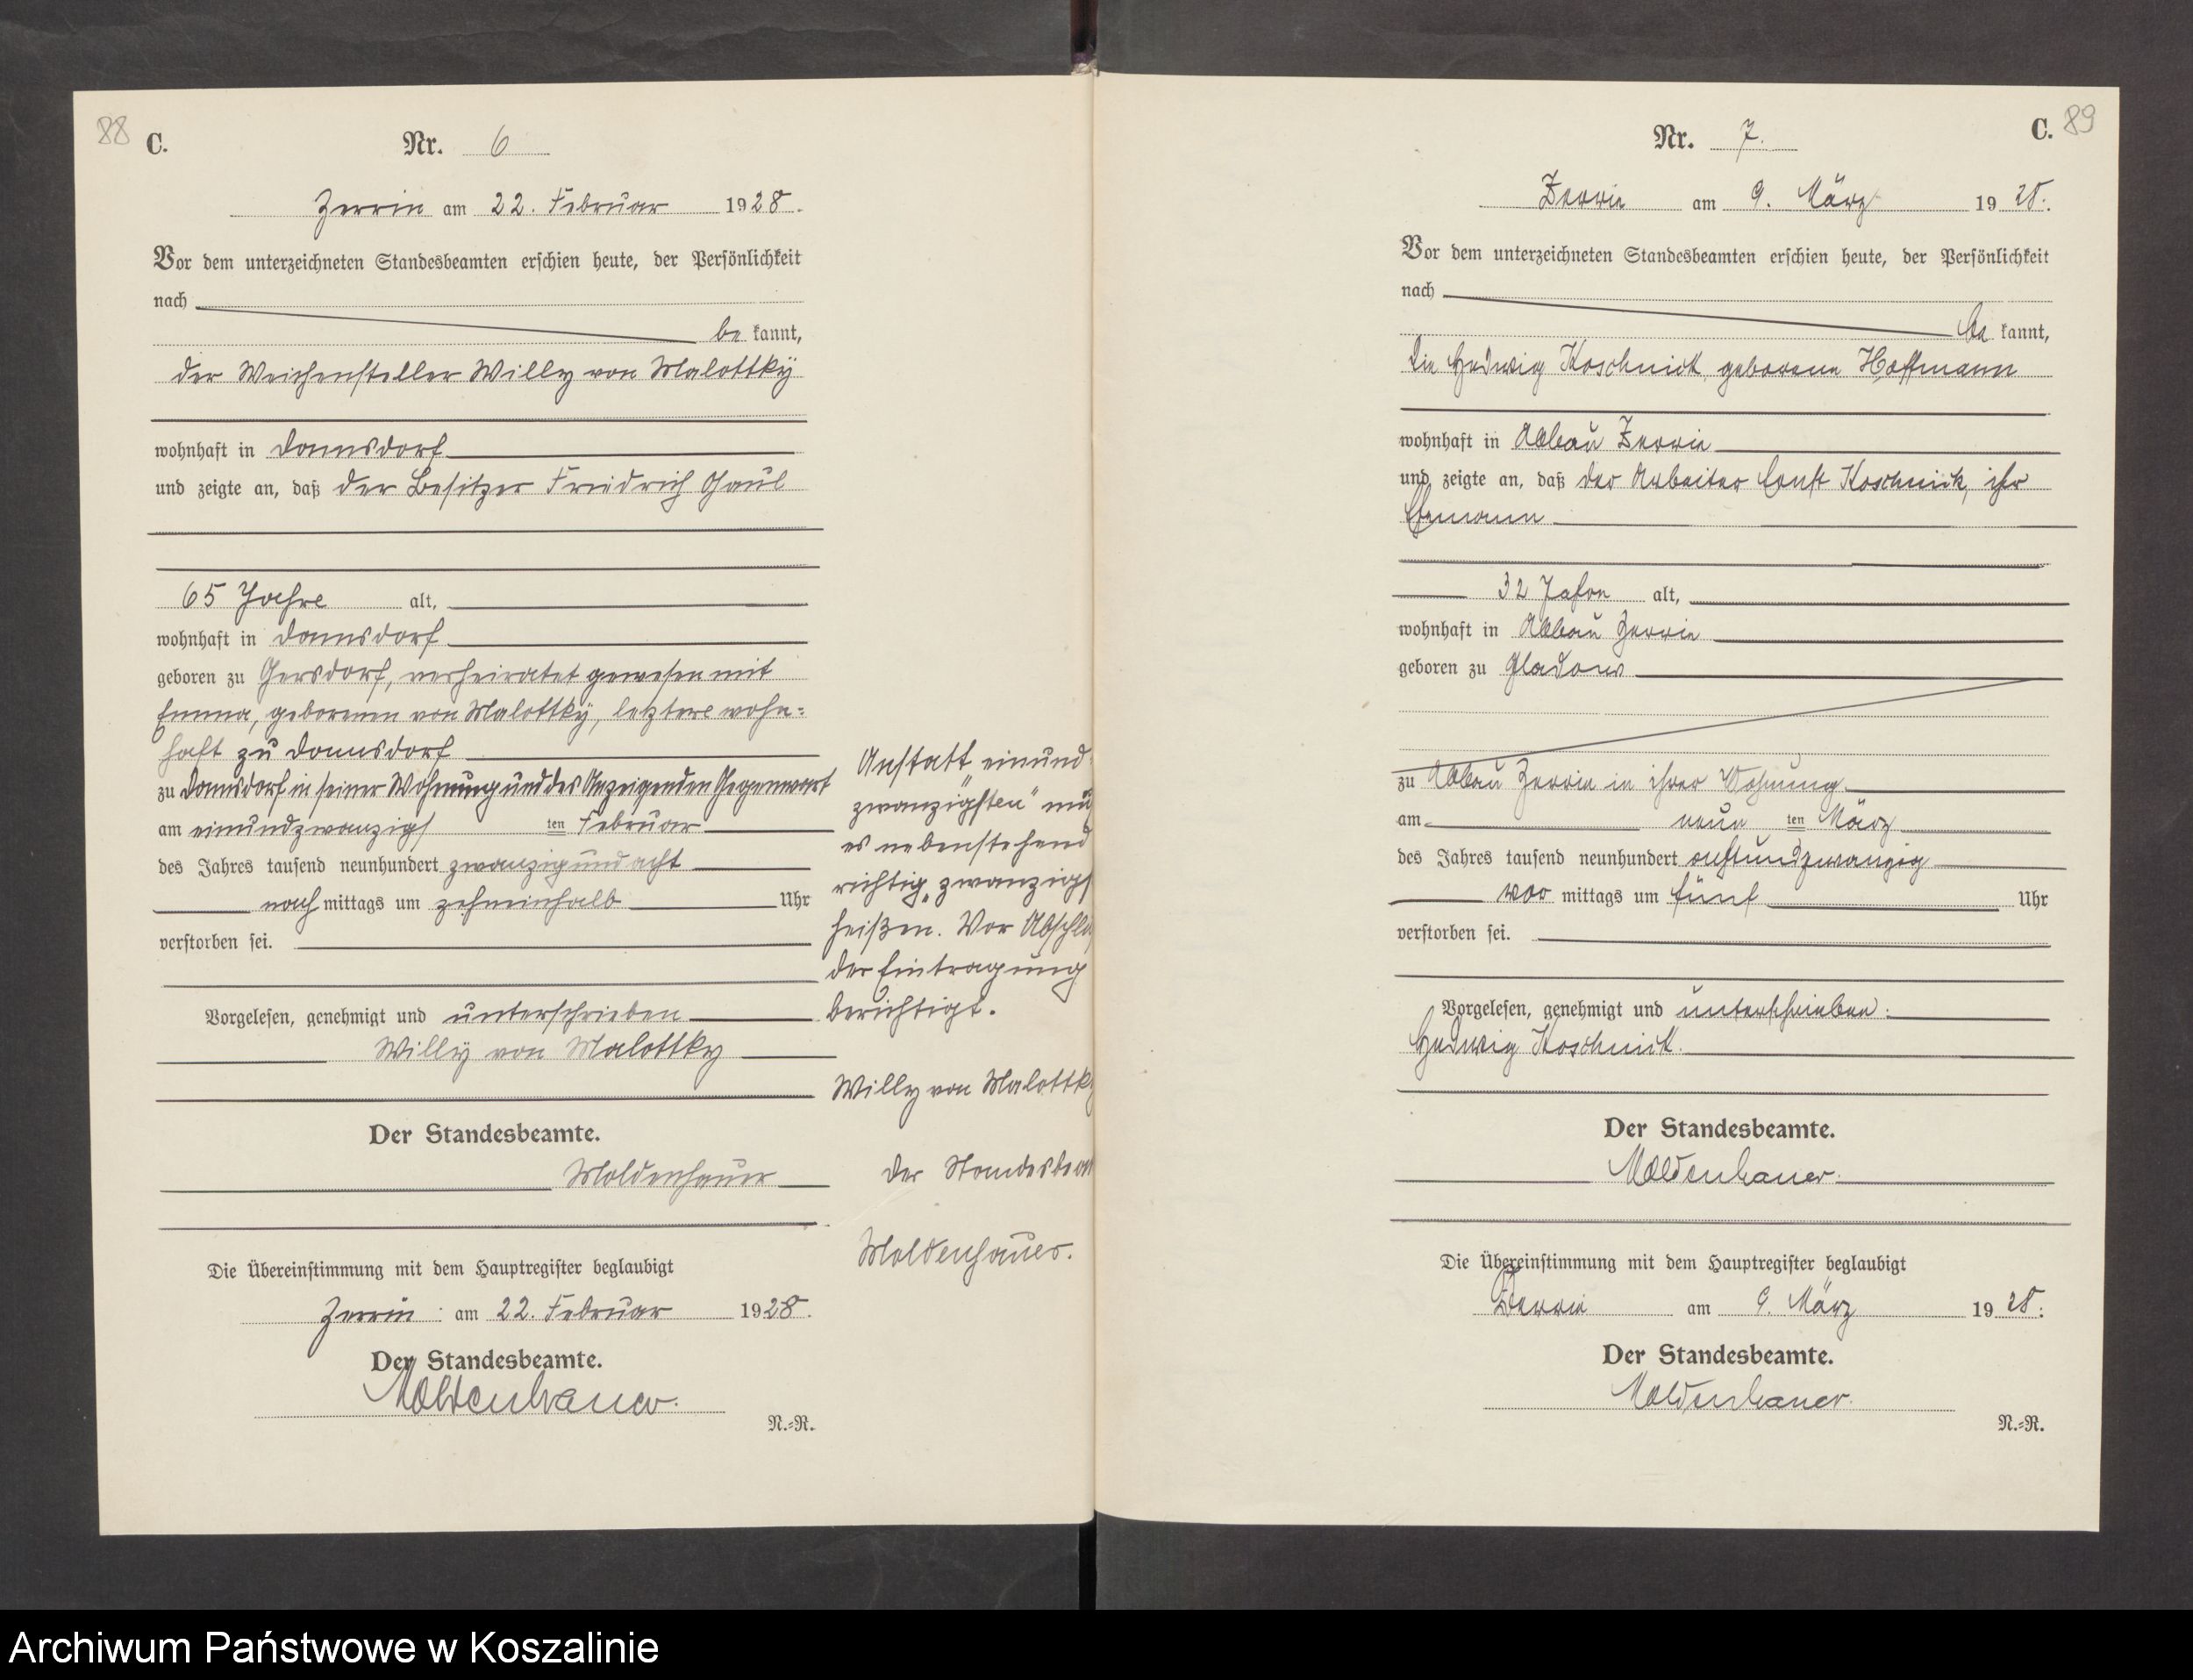 88
C.
Nr. 6
Zerrin am 22. Februar 1928.
Vor dem unterzeichneten Standesbeamten erschien heute, der Persönlichkeit
nach
be kannt,
der Weichensteller Willy von Malottkÿ
wohnhaft in Damsdorf
und zeigte an, daß der Besitzer Friedrich Gaul
65 Jahre alt,
wohnhaft in Damsdorf
geboren zu Gersdorf, verheiratet gewesen mit
Emma, geborenen von Malottkÿ, letztere wohn=
haft zu Damsdorf
zu Damsdorf in seiner Wohnung und des Anzeigenden Gegenwart
am einundzwanzigs ten Februar
des Jahres tausend neunhundert zwanzig und acht
nach mittags um zehneinhalb Uhr
verstorben sei.
Vorgelesen, genehmigt und unterschrieben
Willÿ von Malottky
Der Standesbeamte.
Moldenhauer
Die Übereinstimmung mit dem Hauptregister beglaubigt
Zerrin am 22. Februar 1928.
Der Standesbeamte.
Moldenhauer.
N.=R.
Anstatt „einund
zwanzigsten" mu
es nebenstehend
richtig „zwanzigs
heißen. Vor Abschlu
der Eintragung
berichtigt.
Willy von Malottky
Der Standesbeam
Moldenhauer.
C. 89
Nr. 7.
Zerrin am 9. März 1928.
Vor dem unterzeichneten Standesbeamten erschien heute, der Persönlichkeit
nach
be kannt,
die Hedwig Koschnick geborene Hoffmann
wohnhaft in Abbau Zerrin
und zeigte an, daß der Arbeiter Ernst Koschnick, ihr
Ehemann
32 Jahre alt,
wohnhaft in Abbau Zerrin
geboren zu Gladow
zu Abbau Zerrin in ihrer Wohnung
am neun ten März
des Jahres tausend neunhundert achtundzwanzig
vor mittags um fünf Uhr
verstorben sei.
Vorgelesen, genehmigt und unterschrieben:
Hedwig Koschnick.
Der Standesbeamte.
Moldenhauer.
Die Übereinstimmung mit dem Hauptregister beglaubigt
Zerrin am 9. März 1928.
Der Standesbeamte.
Moldenhauer.
N.=R.
Archiwum Państwowe w Koszalinie